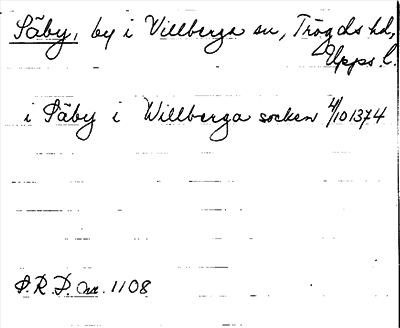 Säby, by i Villberga sn, Trögds hd,
Upps. l.
i Säby i Willberga socken 4/10 1374
S.R.P. nr. 1108